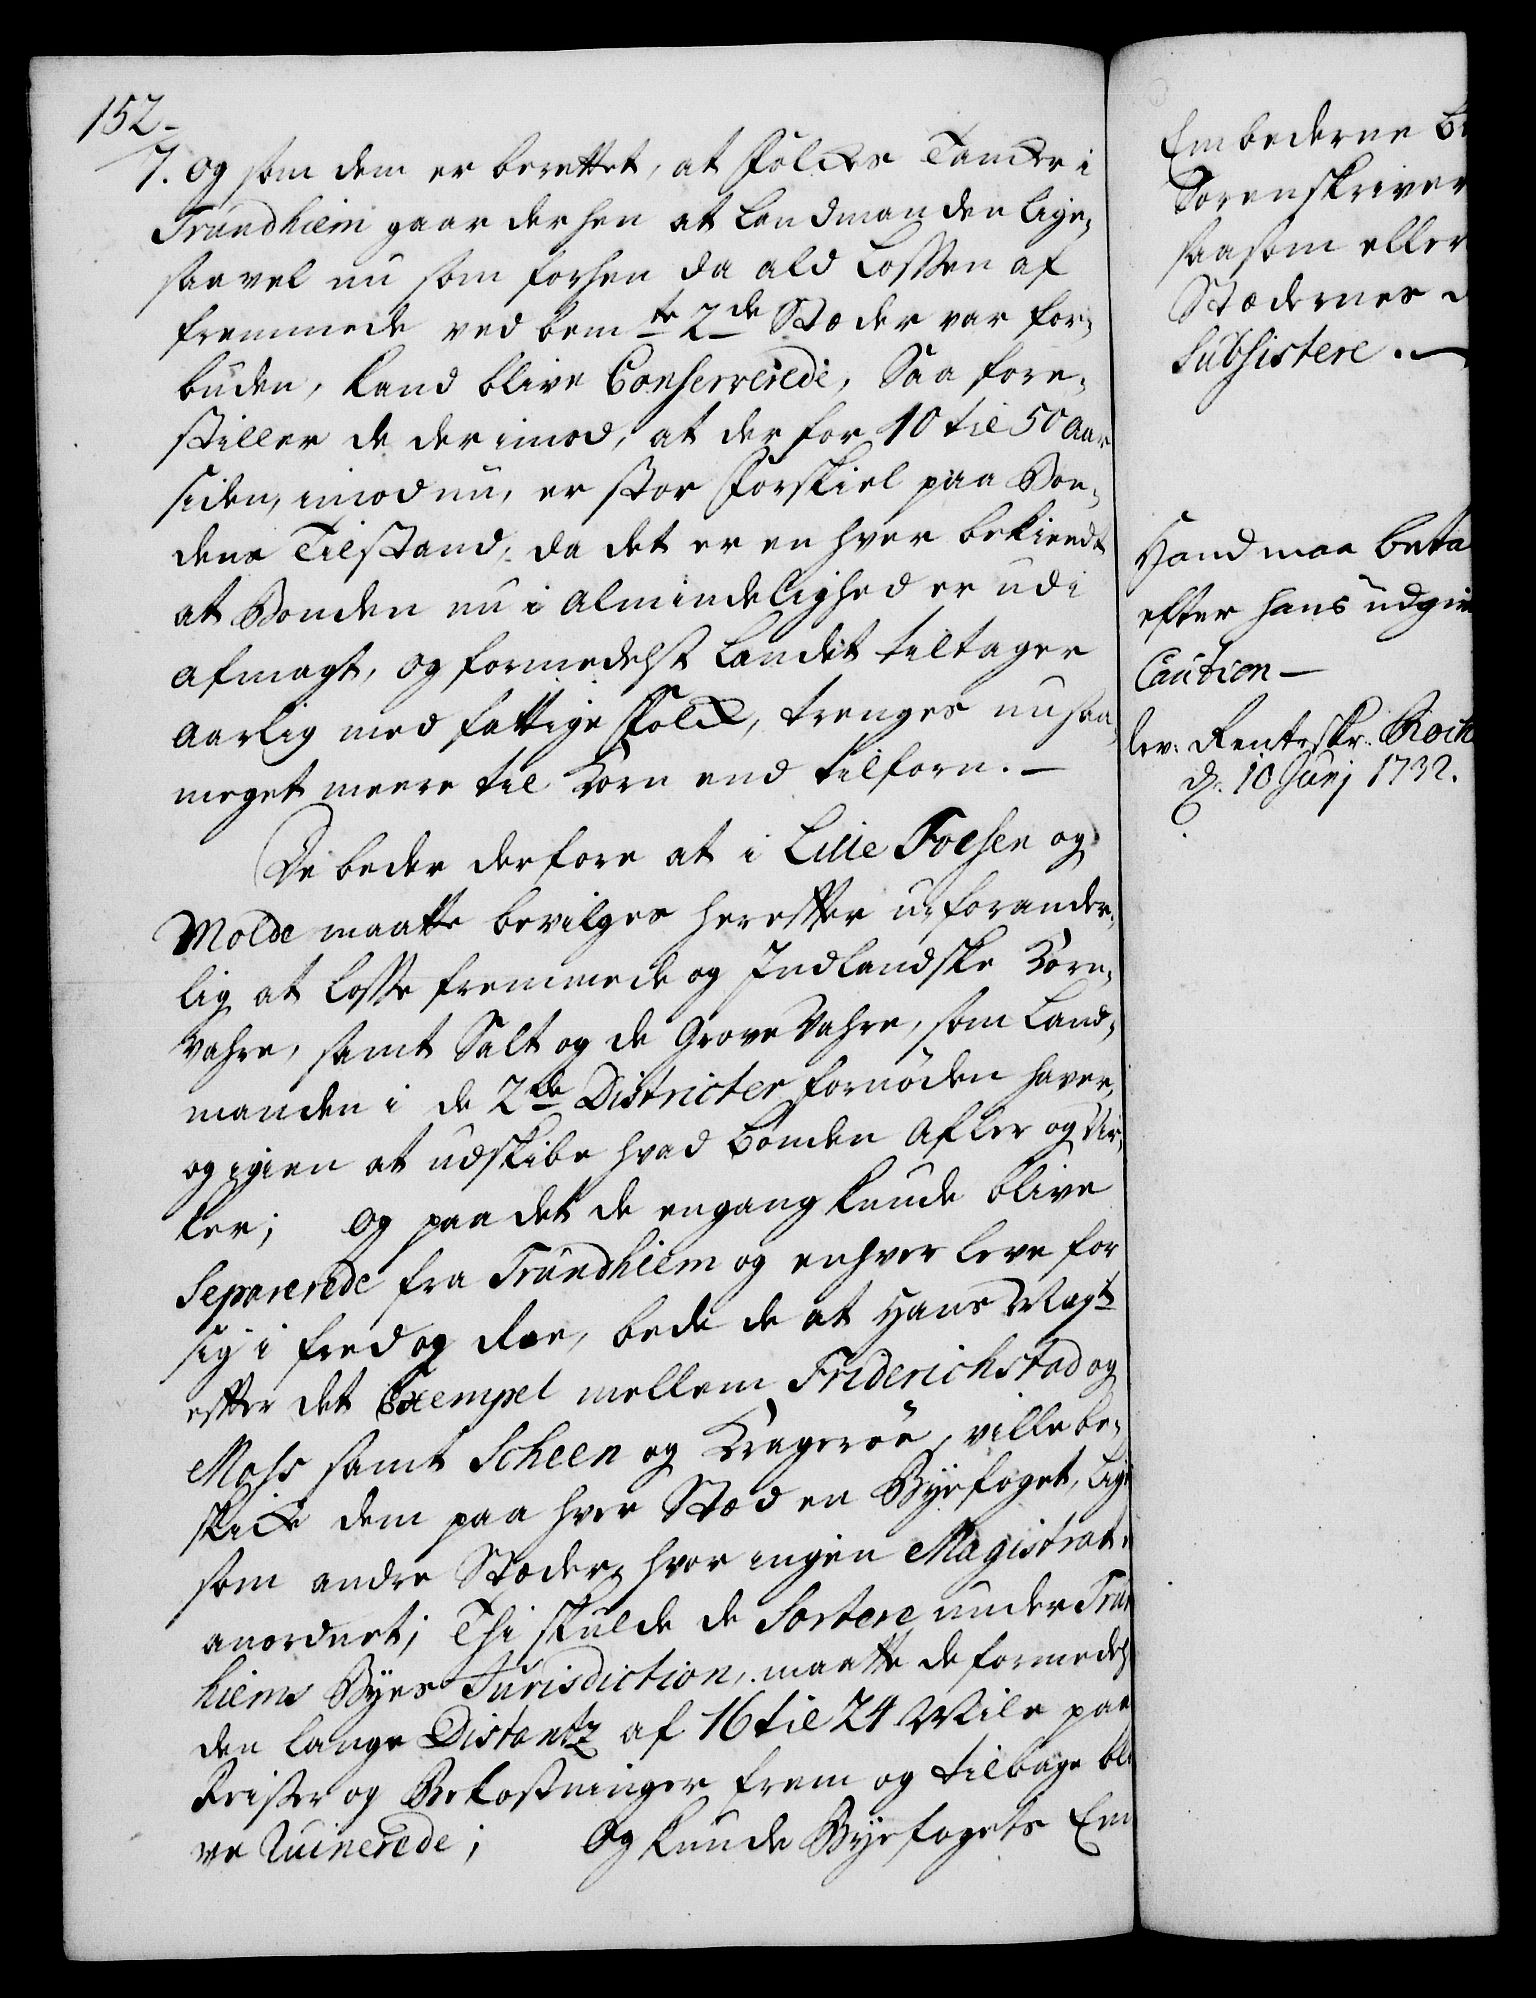 152.
7. Og som dem er berettet, at Folckes Tancke i
Trundhiem gaar derhen at Landmanden lige-
saavel nu som forhen da ald Lossen af
fremmede ved bem.te 2de Stæder var for-
buden, kand blive Conserverede, Saa fore-
stiller de derimod, at der for 40 til 50 Aar
siden, imod nu, er stor Forskiel paa Bon-
dens Tilstand, da det er en hver bekiendt
at Bonden nu i Almindelighed er udi
Afmagt, og formedelst Landet tiltager
Aarlig med fattige Folck, trenges nu saa
meget meere til Korn end tilforn. —
De beder derfore at i Lille Foesen og
Molde maatte bevilges herefter uforander-
lig at losse fremmede og Indlandske Korn-
Vahre, samt Salt og de Grove Vahre, som Land-
manden i de 2de Districter fornöden haver,
og igien at udskibe hvad Bonden Afler og Vir-
ker; Og paa det de engang kunde blive
Separerede fra Trundhiem og enhver leve for
sig i fred og Roe, bede de at Hans Mayt
efter det Exempel mellem Friderichstad og
Moss samt Scheen og Krageröe, ville be-
skicke dem paa hver Stæd en Byefoget, lige
som andre Stæder, hvor ingen Magistrat er
anordnet; Thi skulde de Sortere under Trund-
hiems Byes Jurisdiction, maatte de formedelst
den lange Distantz af 16 til 24 Mile paa
Reiser og Bekostninger frem og tilbage bli-
ve Ruinerede; Og kunde Byefogets Em
Embederne
Sorenskriver
saasom eller
Stædernes
Subsistere. —
Hand maa beta
efter hans udgiv
Caution —
lev: Renteskr:
d: 10 Junj 1732.